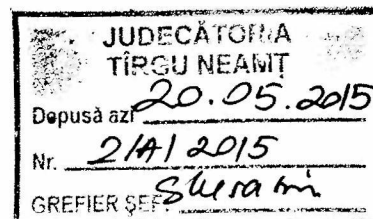 JUDECĂTORIA
TÎRGU NEAMȚ
Depusă azi 20.05.2015
Nr. 2/A/2015
GREFIER ȘEF